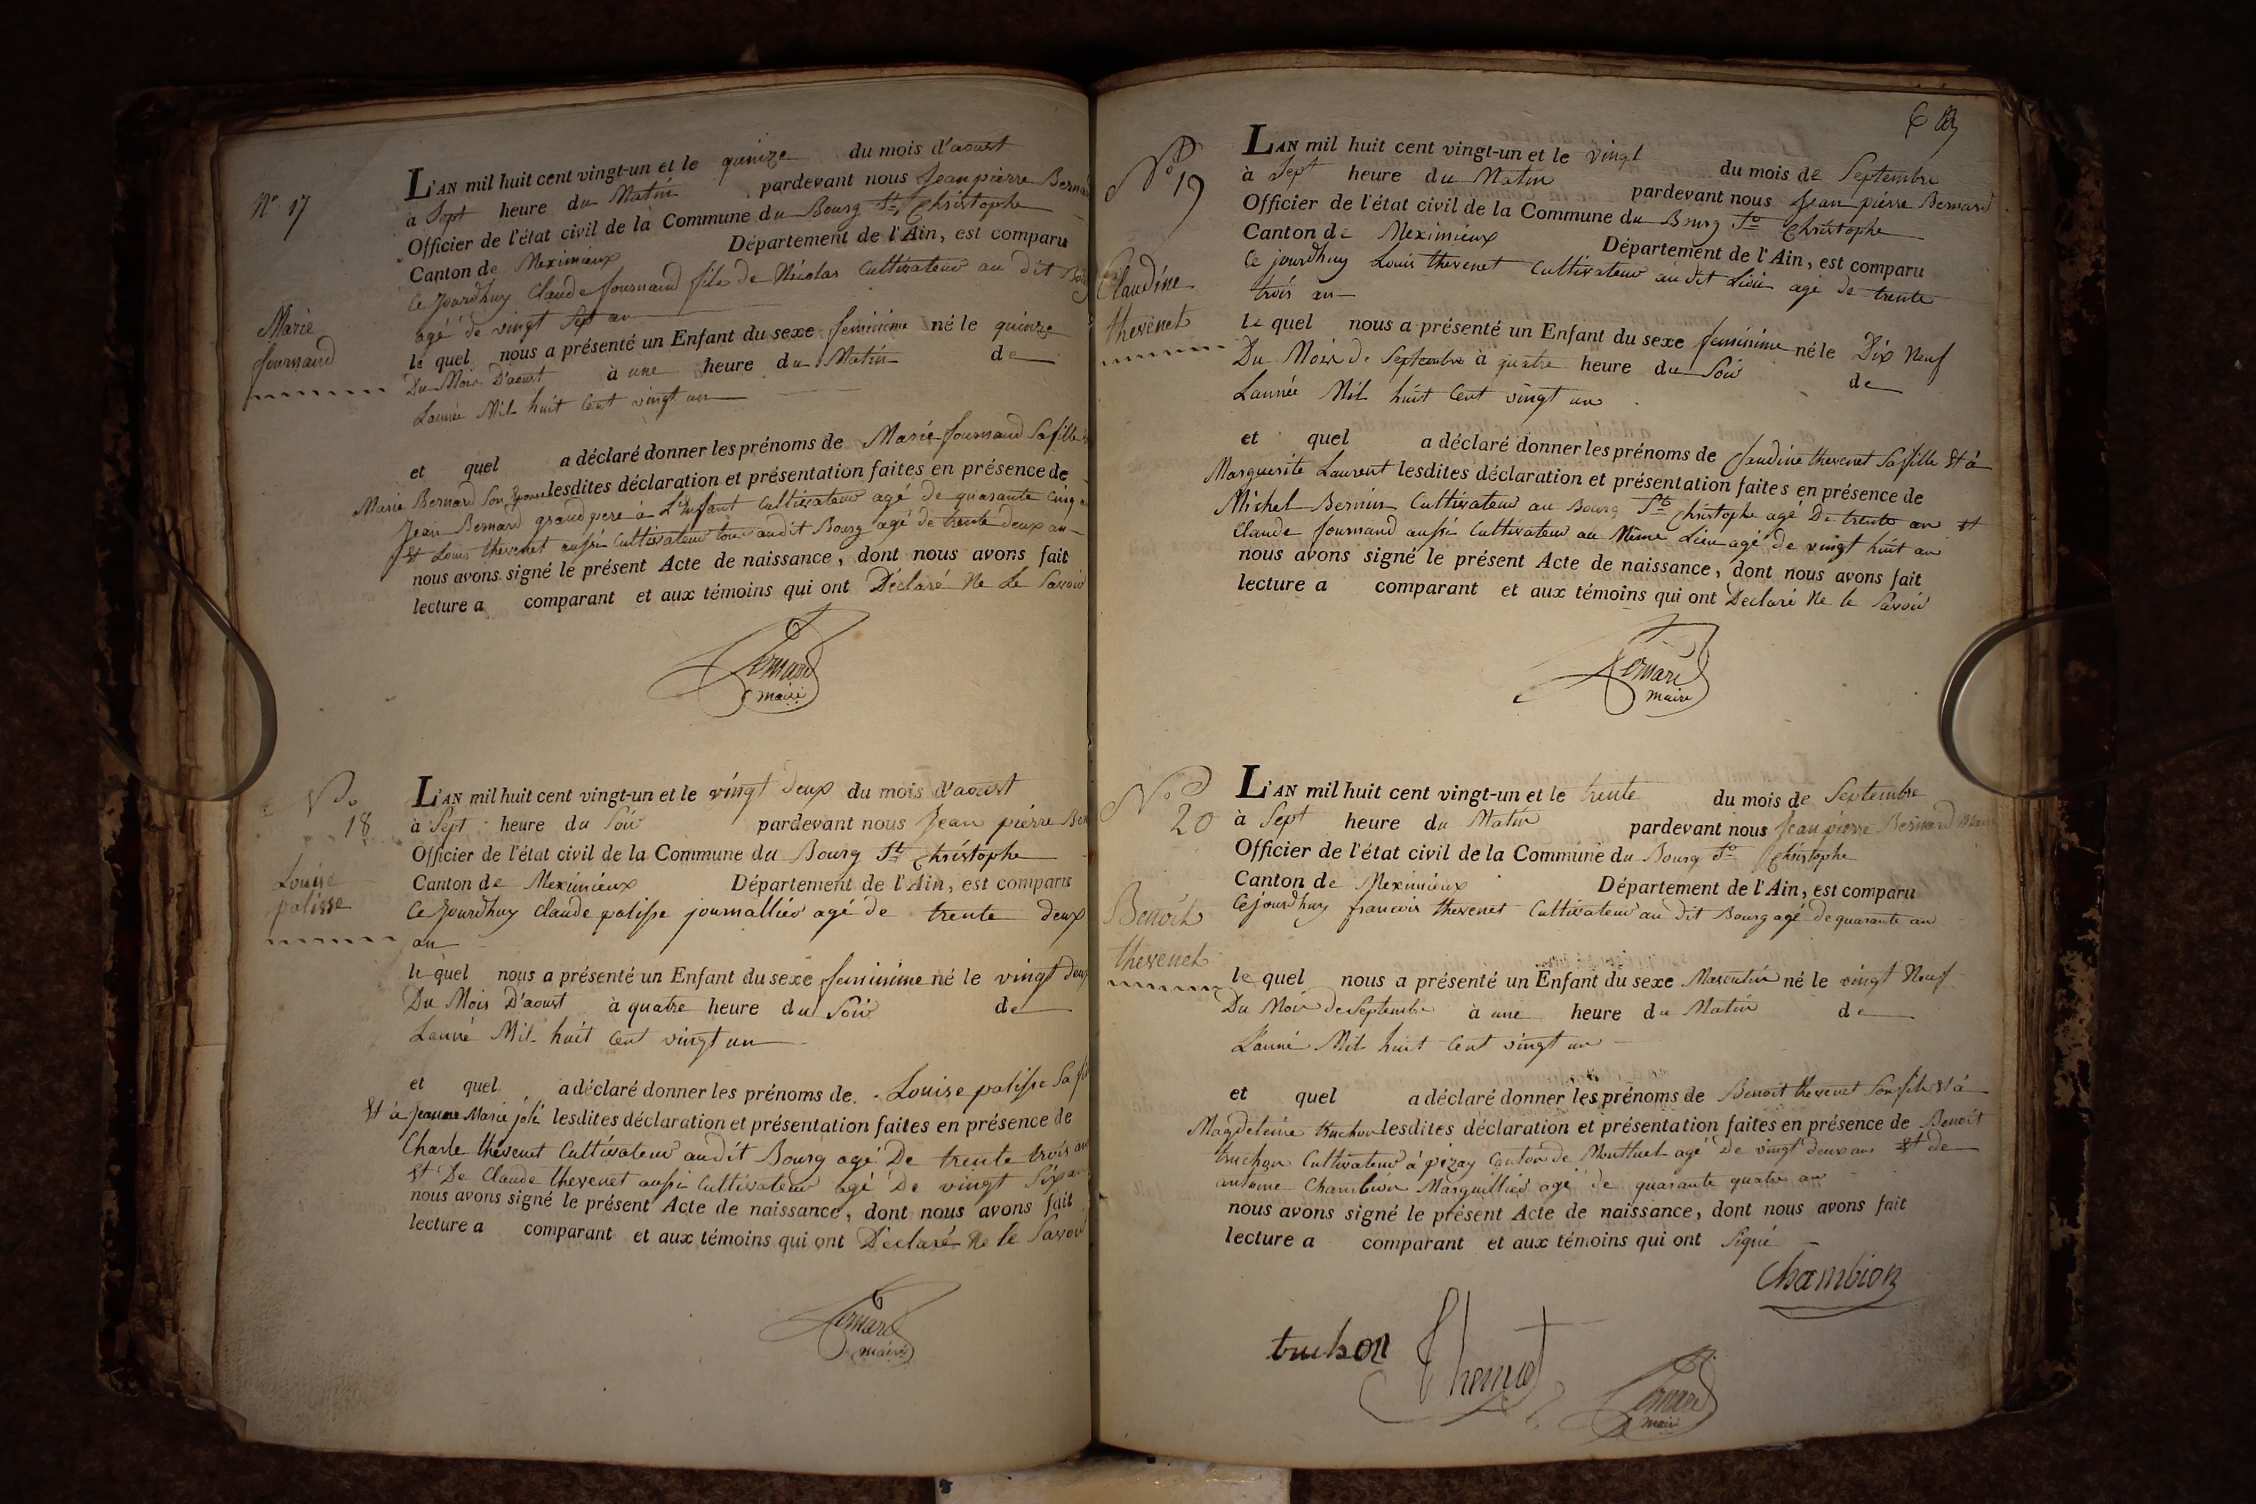 N° 17
Marie
fournand
L'AN mil huit cent vingt-un et le quinze du mois d'aoust
à Sept heure du Matin pardevant nous Jean pierre Bernard
Officier de l'état civil de la Commune du Bourg St Christophe
Canton de Meximieux Département de l'Ain, est comparu
Ce Jourdhuy Claude fournand fils de Nicolas Cultivateur au dit
agé de vingt Sept an
le quel nous a présenté un Enfant du sexe feminime né le quinze
Du Mois D'aoust à une heure du Matin de
Lannée Mil huit Cent vingt un
et quel a déclaré donner les prénoms de Marie fournand Sa fille
Marie Bernard Son Epouse lesdites déclaration et présentation faites en présence de
Jean Bernard grand pere à L'Enfant Cultivateur agé de quarante Cinq
Et Louis thevenet aussi Cultivateur tous audit Bourg agé de trente deux an
nous avons signé le présent Acte de naissance, dont nous avons fait
lecture a comparant et aux témoins qui ont Déclaré Ne Le Savoir
Bernard
maire
No
18
Louise
palisse
L'AN mil huit cent vingt-un et le vingt deux du mois d'aoust
à Sept heure du Soir pardevant nous Jean pierre Ber
Officier de l'état civil de la Commune du Bourg St Christophe
Canton de Meximieux Département de l'Ain, est comparu
Ce Jourdhuy claude palisse journallier agé de trente deux
an
le quel nous a présenté un Enfant du sexe feminime né le vingt deux
Du Mois D'aoust à quatre heure du Soir de
Lanné Mil huit Cent vingt un
et quel a déclaré donner les prénoms de Louise palisse Sa fi
Et à Jeanne Marie joli lesdites déclaration et présentation faites en présence de
Charle thevenet Cultivateur audit Bourg agé De trente trois an
Et De Claude thevenet aussi Cultivateur agé De vingt Six an
nous avons signé le présent Acte de naissance, dont nous avons fait
lecture a comparant et aux témoins qui ont Déclaré Ne le Savoir
Bernard
maire
No
19
Claudine
thevenet
L'AN mil huit cent vingt-un et le vingt du mois de Septembre
à Sept heure du Matin pardevant nous Jean pierre Bernard
Officier de l'état civil de la Commune du Bourg St Christophe
Canton de Meximieux Département de l'Ain, est comparu
Ce jourdhuy Louis thevenet Cultivateur au dit Lieu agé de trente
trois an
le quel nous a présenté un Enfant du sexe feminime né le Dix Neuf
Du Mois de Septembre à quatre heure du Soir de
Lannée Mil huit Cent vingt un
et quel a déclaré donner les prénoms de Claudine thevenet Sa fille Et à
Marguerite Laurent lesdites déclaration et présentation faites en présence de
Michel Bernin Cultivateur au Bourg St Christophe agé De trente an Et
Claude fournand aussi Cultivateur au Même Lieu agé de vingt huit an
nous avons signé le présent Acte de naissance, dont nous avons fait
lecture a comparant et aux témoins qui ont Déclaré Ne le Savoir
Bernard
maire
No
20
Benoit
thevenet
L'AN mil huit cent vingt-un et le trente du mois de Septembre
à Sept heure du Matin pardevant nous Jean pierre Bernard Maire
Officier de l'état civil de la Commune du Bourg St Christophe
Canton de Meximieux Département de l'Ain, est comparu
Cejourdhuy francois thevenet Cultivateur au dit Bourg agé de quarante an
le quel nous a présenté un Enfant du sexe Masculin né le vingt Neuf
Du Mois de Septembre à une heure du Matin de
L'anné Mil huit Cent vingt un
et quel a déclaré donner les prénoms de Benoit thevenet Son fils Et à
Magdeleine truchon lesdites déclaration et présentation faites en présence de Benoit
truchon Cultivateur à pizay Canton de Montluel agé De vingt deux an Et de
antoine Chambion Marguillier agé de quarante quatre an
nous avons signé le présent Acte de naissance, dont nous avons fait
lecture a comparant et aux témoins qui ont Signé
Chambion
truchon
Thevenet
Bernard
maire